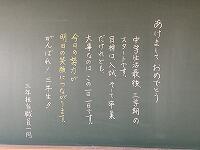 あけまして おめでとう
中学生活最後、三学期の
スタートです。
目標は入試、そして卒業
だけれども、
大事なのは この一日一日です。
今日の努力が
明日の笑顔につながります。
がんばれ！三年生!!
三年担当職員一同